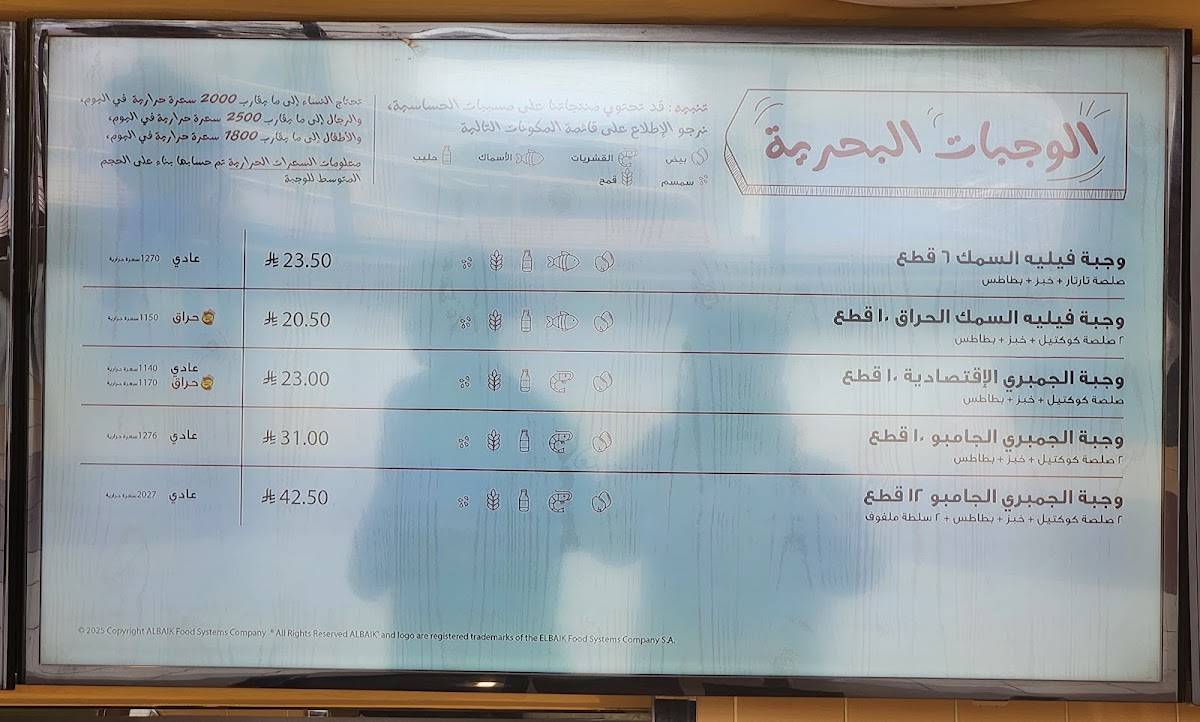 الوجبات البحرية
تنبيه: قد تحتوي منتجاتنا على مسببات الحساسية،
نرجو الإطلاع على قائمة المكونات التالية
بيض القشريات الأسماك حليب
سمسم قمح
تحتاج النساء إلى ما يقارب 2000 سعرة حرارية في اليوم،
والرجال إلى ما يقارب 2500 سعرة حرارية في اليوم،
والأطفال إلى ما يقارب 1800 سعرة حرارية في اليوم،
معلومات السعرات الحرارية تم حسابها بناء على الحجم
المتوسط للوجبة
وجبة فيليه السمك ٦ قطع 23.50 عادي 1270 سعرة حرارية
صلصة تارتار + خبز + بطاطس
وجبة فيليه السمك الحراق ١٠ قطع 20.50 حراق 1150 سعرة حرارية
٢ صلصة كوكتيل + خبز + بطاطس
وجبة الجمبري الإقتصادية ١٠ قطع 23.00 عادي 1140 سعرة حرارية
حراق 1170 سعرة حرارية
صلصة كوكتيل + خبز + بطاطس
وجبة الجمبري الجامبو ١٠ قطع 31.00 عادي 1276 سعرة حرارية
٢ صلصة كوكتيل + خبز + بطاطس
وجبة الجمبري الجامبو ١٢ قطع 42.50 عادي 2027 سعرة حرارية
٢ صلصة كوكتيل + خبز + بطاطس + ٢ سلطة ملفوف
© 2025 Copyright ALBAIK Food Systems Company ® All Rights Reserved ALBAIK® and logo are registered trademarks of the ELBAIK Food Systems Company S.A.